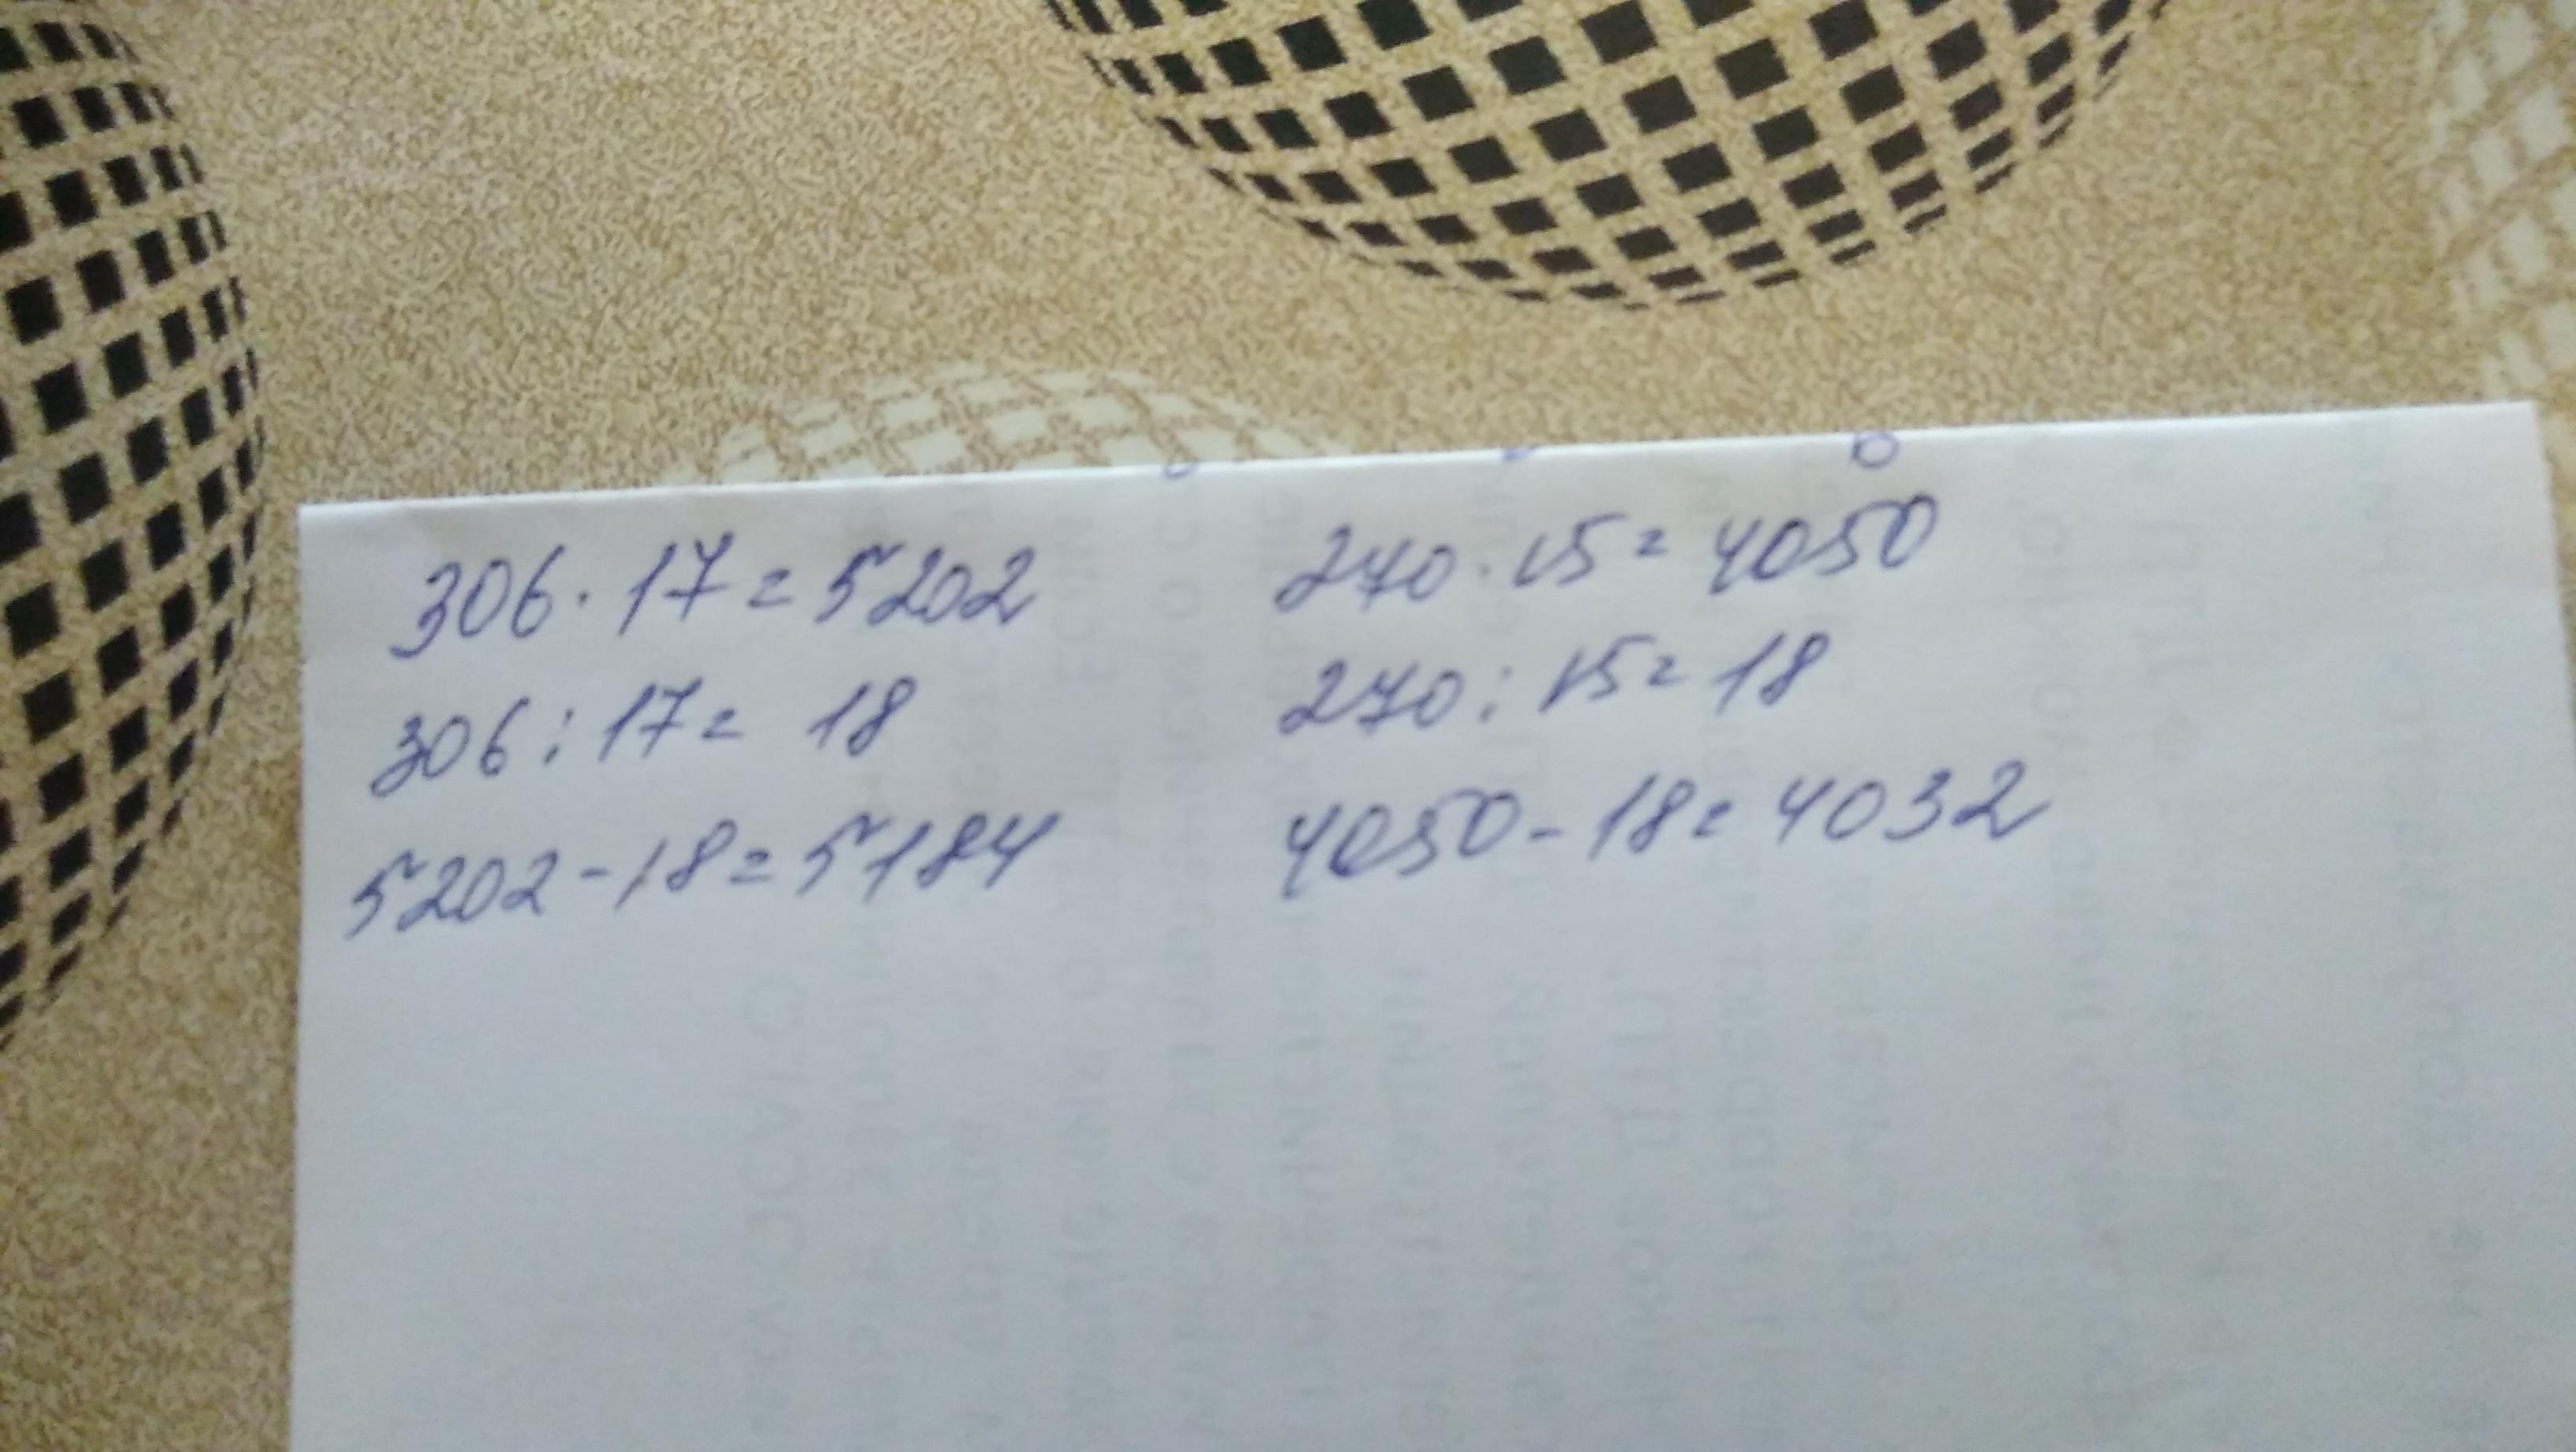 306 · 17 = 5202
306 : 17 = 18
5202 - 18 = 5184
270 · 15 = 4050
270 : 15 = 18
4050 - 18 = 4032